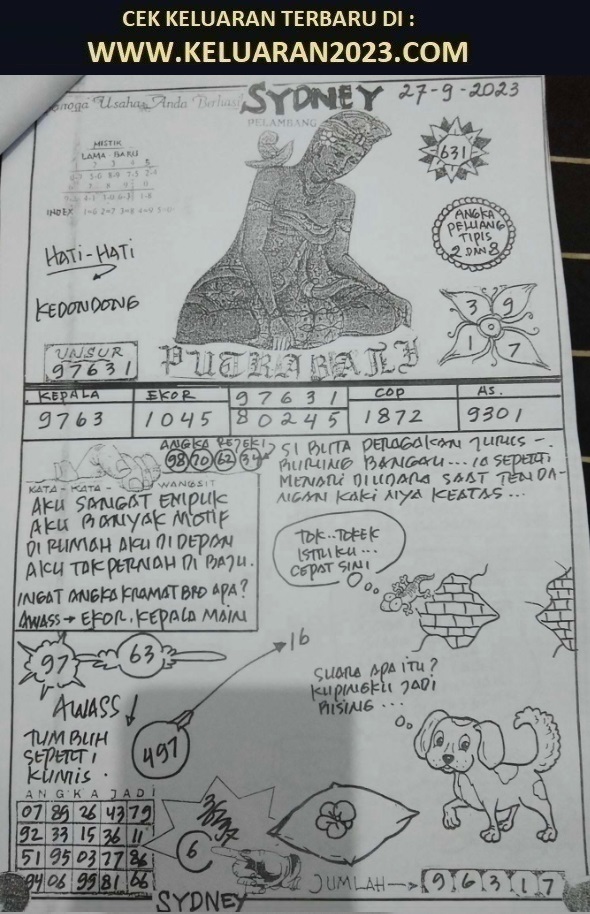 CEK KELUARAN TERBARU DI :
WWW.KELUARAN2023.COM
Usaha Anda Berhasil
SYDNEY 27-9-2023
PELAMBANG
MISTIK
LAMA BARU
INDEX 1=6 2=7 3=8 4=9 5=0
631
ANGKA
PELUANG
TIPIS
2 DAN 8
HATI-HATI
KEDONDONG
3 9
1 7
UNSUR
97631
PUTRA BALI
KEPALA EKOR 97631 COP AS.
9763 1045 80245 1872 9301
ANGKA REJEKI
98 70 62 34
SI BUTA PERAGAKAN JURUS -
BURUNG BANGAU... IA SEPERTI
MENARI DIUDARA SAAT TENDA-
NGAN KAKI NYA KEATAS...
KATA - KATA - WANGSIT
AKU SANGAT EMPUK
AKU BANYAK MOTIF
DI RUMAH AKU DI DEPAN
AKU TAK PERNAH DI BAJU.
INGAT ANGKA KRAMAT BRO APA?
AWASS → EKOR, KEPALA MAIN
TOK..TOKEK
ISTRIKU...
CEPAT SINI
97 63
16
SUARA APA ITU?
KUPINGKU JADI
BISING...
AWASS
497
TUMBUH
SEPERTI
KUMIS.
ANGKA JADI
07 89 26 43 79
92 33 15 36 11
51 95 03 77 86
94 06 99 81 66
6
SYDNEY
JUMLAH → 9 6 3 1 7